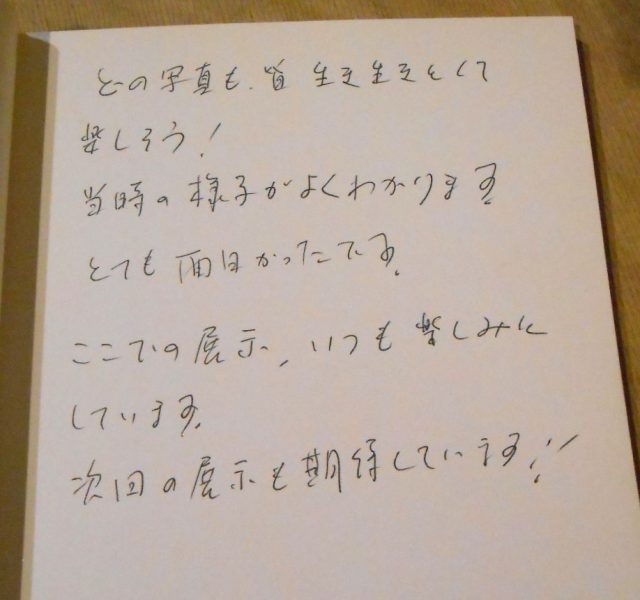 どの写真も、皆 生き生きとして
楽しそう!
当時の様子がよくわかります
とても面白かったです。
ここでの展示、いつも楽しみに
しています。
次回の展示も期待しています!!